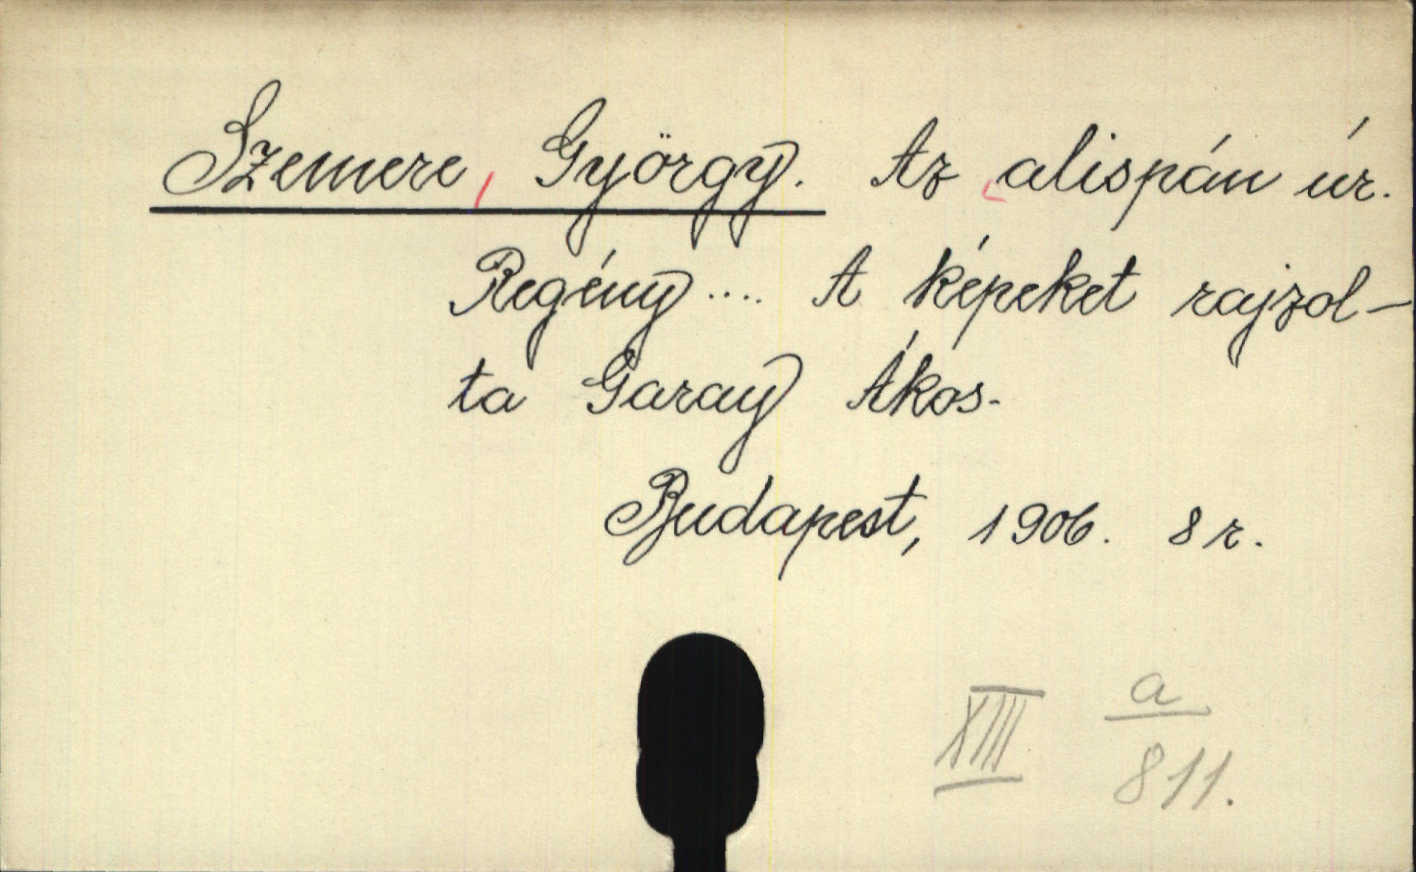 Szemere, György. Az alispán úr.
Regény .... A képeket rajzol-
ta Garay Ákos.
Budapest, 1906. 8 r.
XIII a/811.